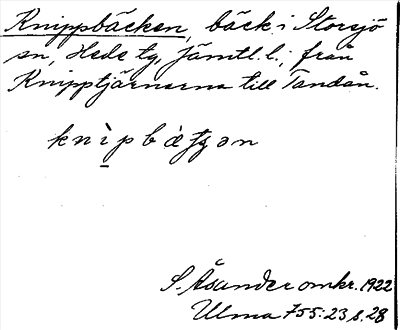 Knippbäcken, bäck i Storsjö
sn, Hede tg, Jämtl. l.; från
Knipptjärnarna till Tandån.
S. Åsander omkr. 1922
Ulma 755:23 s. 28